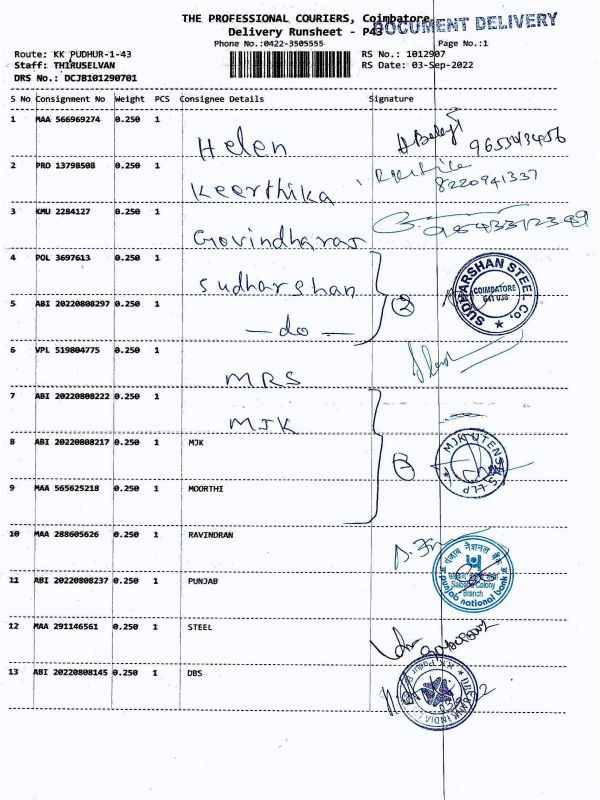 THE PROFESSIONAL COURIERS, Coimbatore
DOCUMENT DELIVERY
Delivery Runsheet - P43
Phone No.:0422-3505555
Page No.:1
Route: KK PUDHUR-1-43
RS No.: 1012907
Staff: THIRUSELVAN
RS Date: 03-Sep-2022
DRS No.: DCJB101290701
S No Consignment No Weight PCS Consignee Details Signature
1 MAA 566969274 0.250 1 Helen
2 PRO 13798508 0.250 1 Keerthika 8220941337
3 KMU 2284127 0.250 1 Govindharaj
4 POL 3697613 0.250 1 Sudharshan
SUDHARSHAN STEEL CO. COIMBATORE 641 038
5 ABI 20220808297 0.250 1 -do- 2
6 VPL 519804775 0.250 1 MRS
7 ABI 20220808222 0.250 1 MJK
8 ABI 20220808217 0.250 1 MJK
MJK UTENSILS LLP
9 MAA 565625218 0.250 1 MOORTHI
10 MAA 288605626 0.250 1 RAVINDRAN
11 ABI 20220808237 0.250 1 PUNJAB
पंजाब नैशनल बैंक
Saibaba Colony
Branch
punjab national bank
12 MAA 291146561 0.250 1 STEEL
13 ABI 20220808145 0.250 1 DBS
DBS BANK INDIA